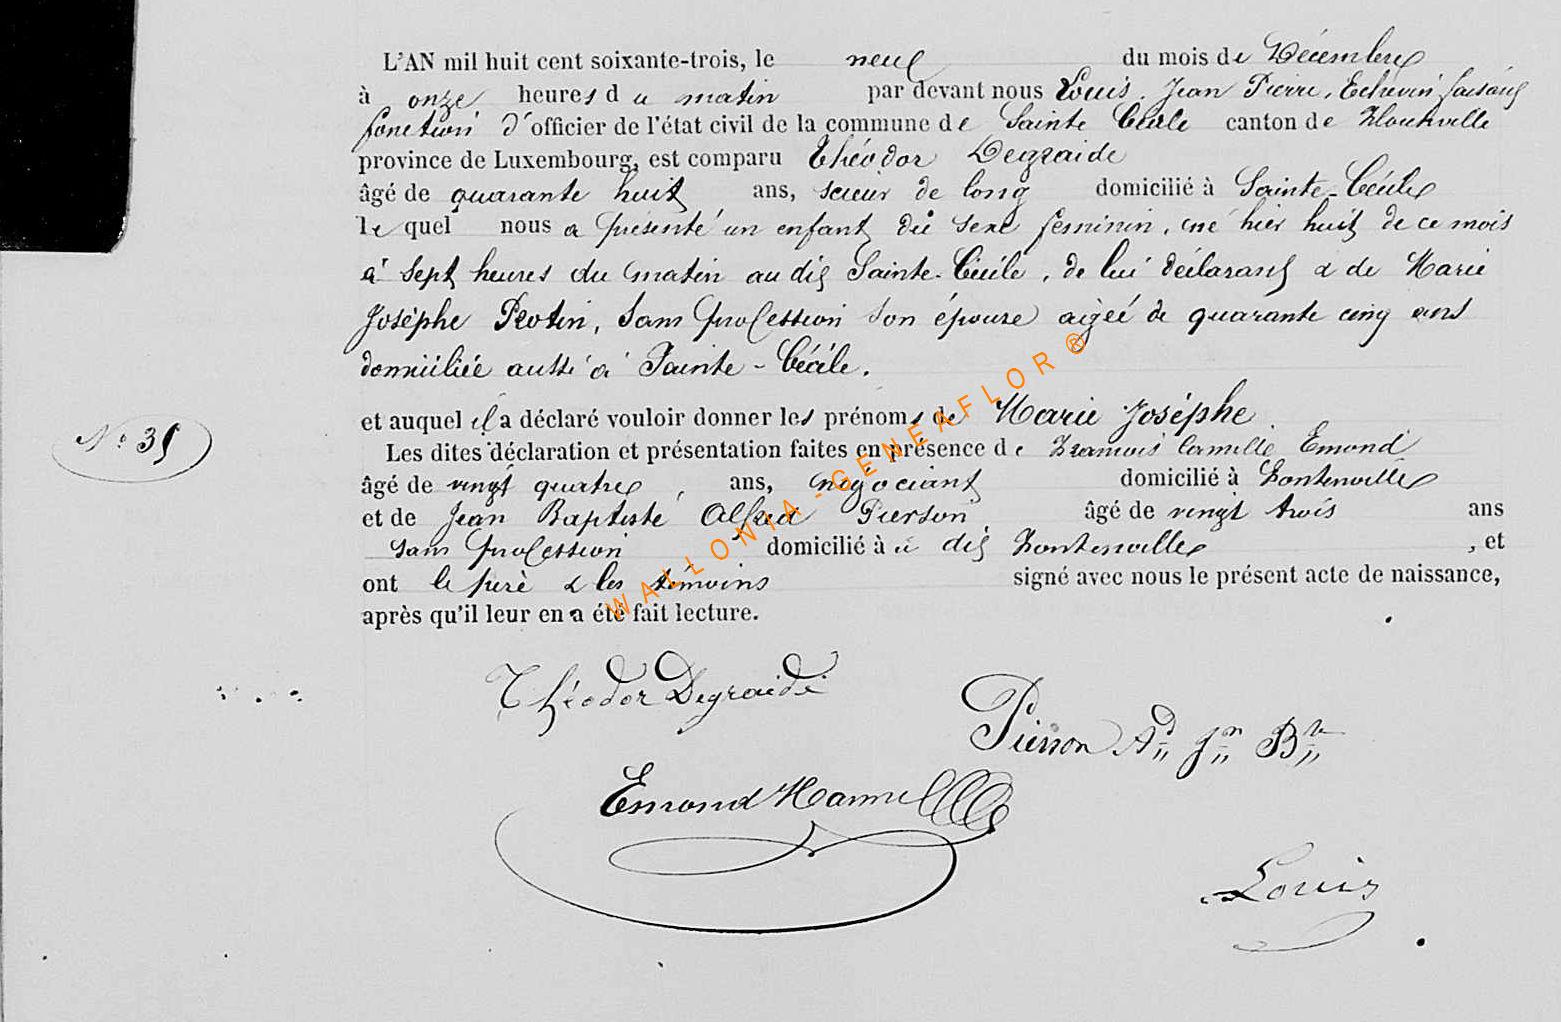 L'AN mil huit cent soixante-trois, le neuf du mois de Décembre
à onze heures du matin par devant nous Louis, Jean Pierre, Echevin faisant
fonction d'officier de l'état civil de la commune de Sainte Cécile canton de Florenville
province de Luxembourg, est comparu Théodor Degraide
âgé de quarante huit ans, scieur de long domicilié à Sainte-Cécile
lequel nous a présenté un enfant du sexe féminin, né hier huit de ce mois
à sept heures du matin au dit Sainte-Cécile, de lui déclarant & de Marie
Joséphe Protin, sans profession son épouse agéé de quarante cinq ans
domiciliée aussi à Sainte-Cécile.
et auquel il a déclaré vouloir donner les prénoms de Marie Joséphe
N° 35
Les dites déclaration et présentation faites en présence de François Camille Emond
âgé de vingt quatre, ans, négociant domicilié à Fontenoille
et de Jean Baptiste Alfred Pierson âgé de vingt trois ans
sans profession domicilié à dit Fontenoille, et
ont le père & les témoins signé avec nous le présent acte de naissance,
après qu'il leur en a été fait lecture.
WALLONIA-GENEAFLOR®
Théodor Degraide
Pierson Ad Jn Bte
Emond
Louis